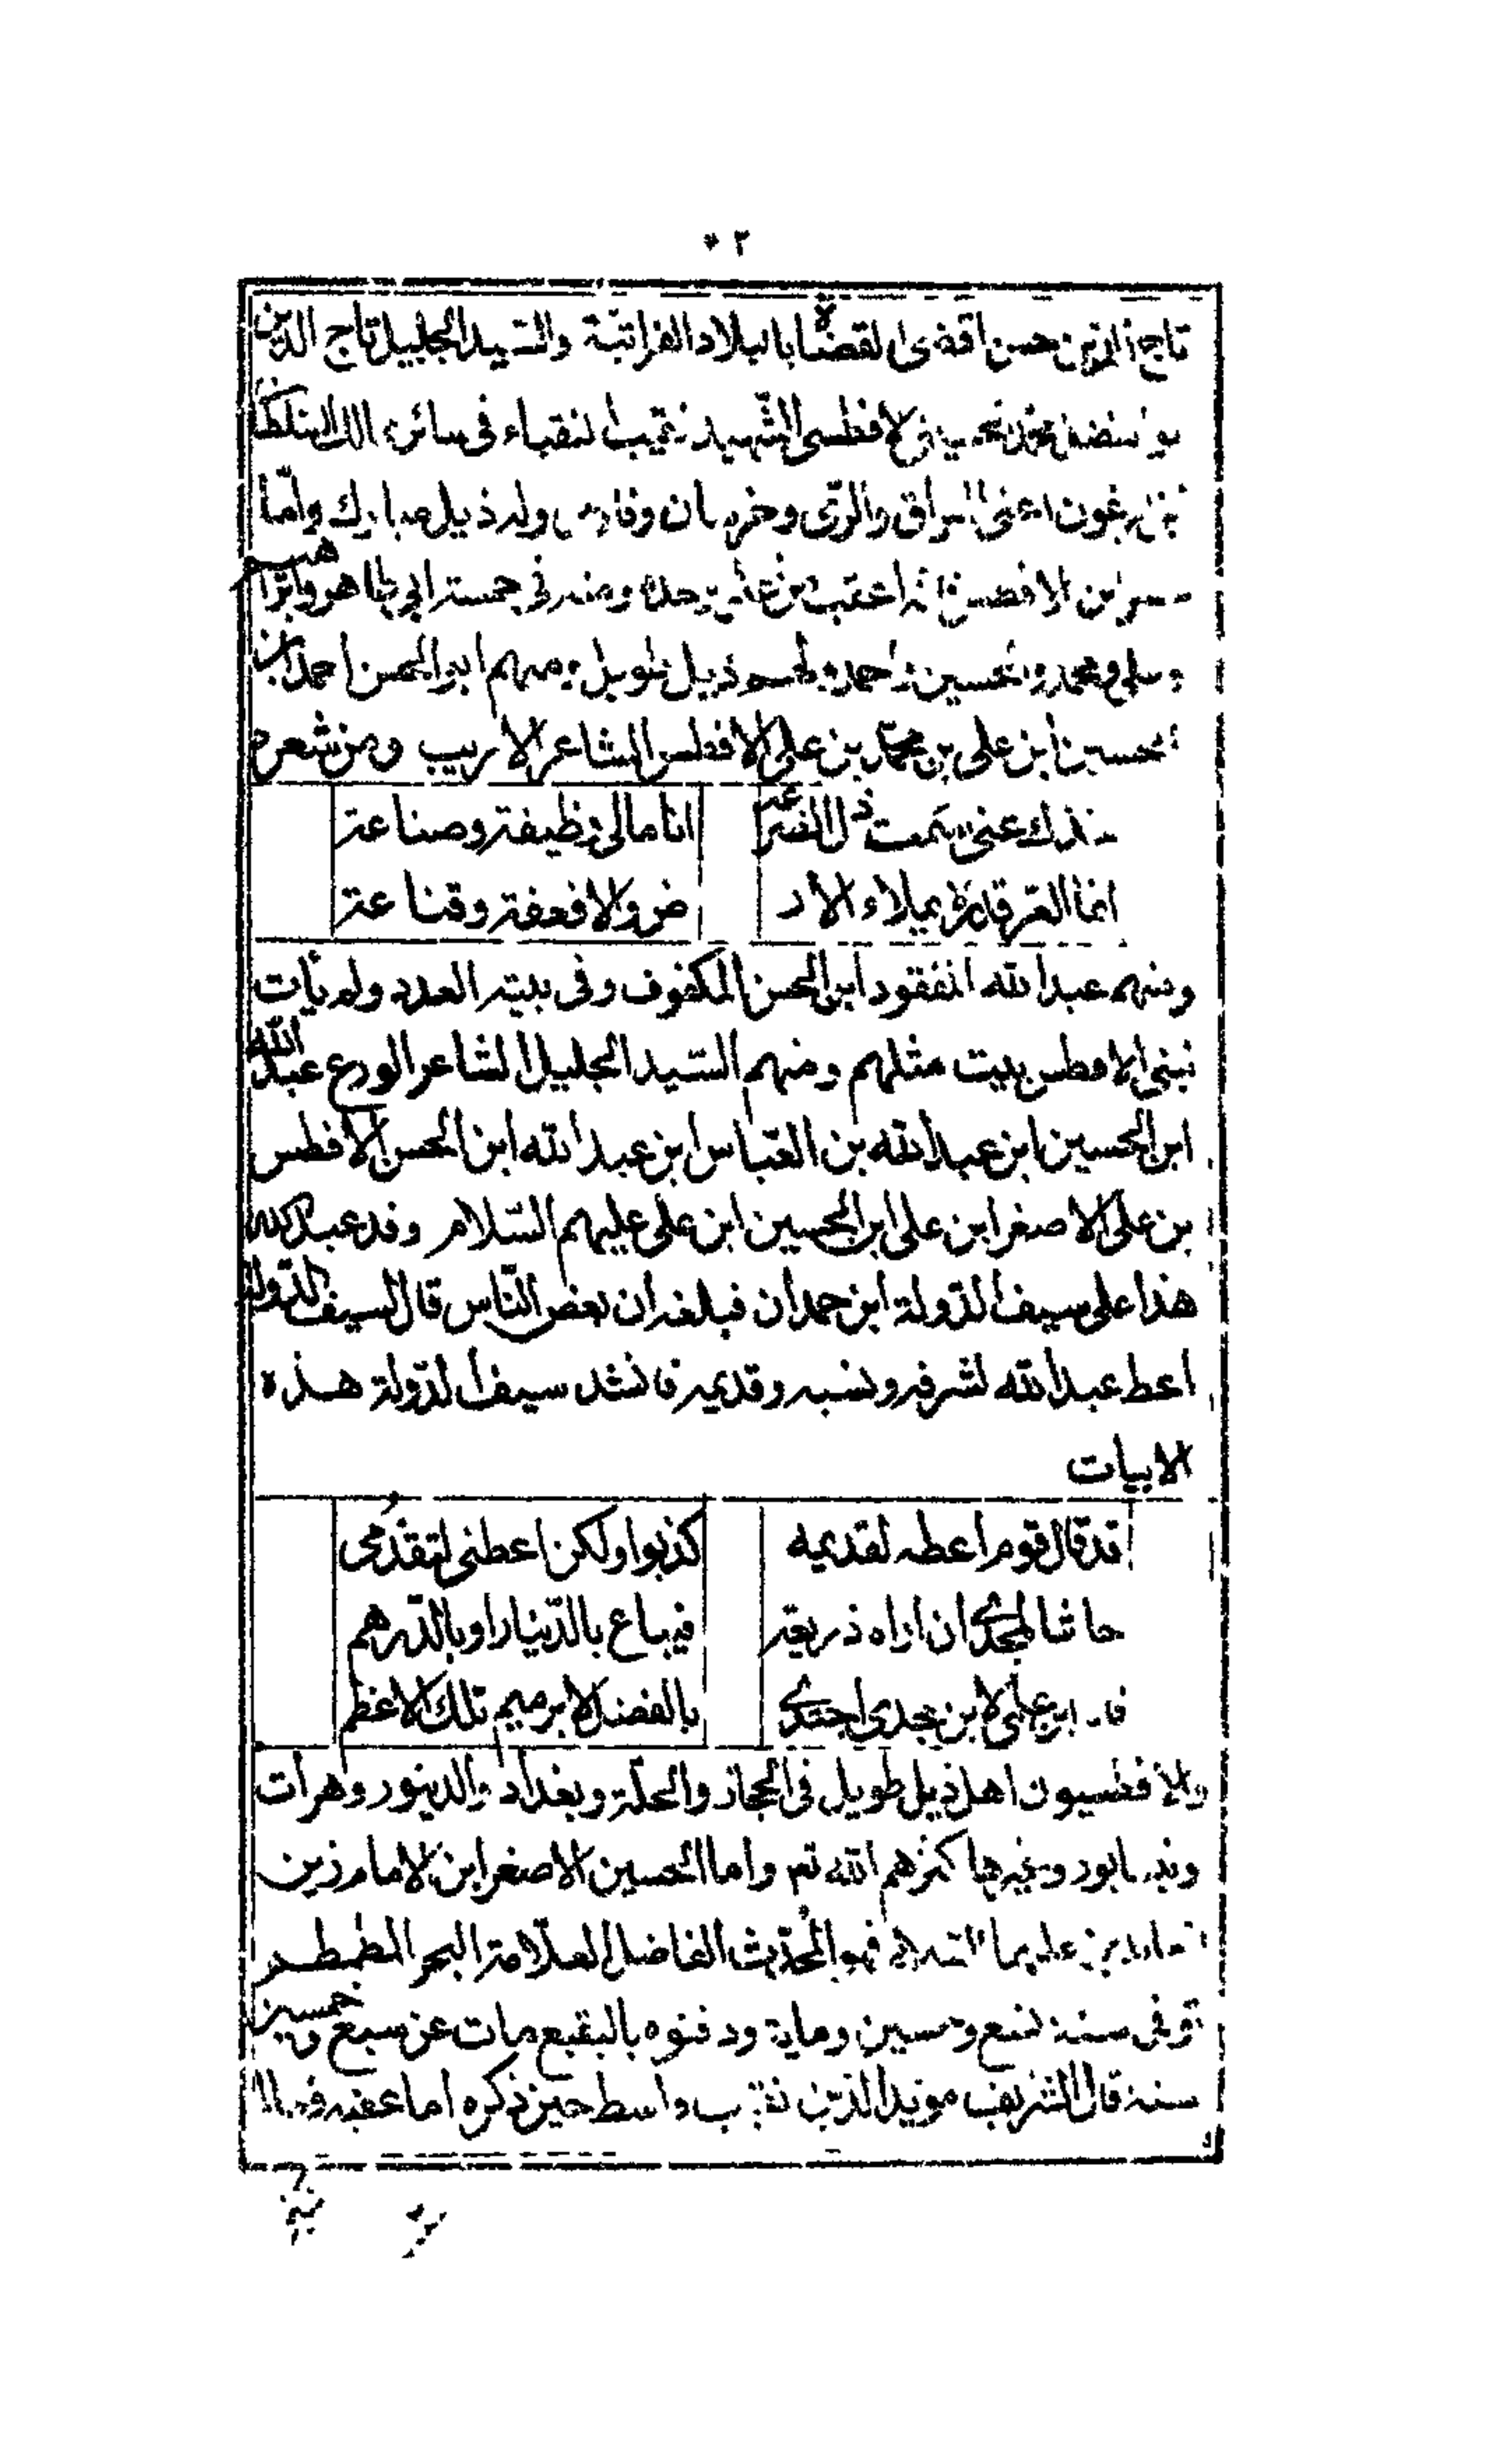 ٢٠
تاج الدين حسن اقضى القضاة بالبلاد الفراتية والسيد الجليل تاج الدين
محمد الافطسى الشهيد نقيب النقباء فى سائر
ارغون اعنى العراق والرى وخراسان وفارس وله ذيل مبارك وامّا
ابن الافطس اعقب من على وحده ومنه فى خمسة ابى طاهر
وعلى ومحمد والحسين واحمد ولهم ذيل طويل ومنهم ابو الحسن احمد ابن
الحسين ابن على بن محمّد بن على الافطس الشاعر الاريب ومن شعره
انا مالى وظيفة وصناعة
ض والا فعفة وقناعة
ومنهم عبد الله المفقود ابن الحسن المكفوف وفى بيته العدد ولم يأت
لبنى الافطس بيت مثلهم ومنهم السّيد الجليل الشاعر الورع عبد الله
ابن الحسين ابن عبد الله بن العبّاس ابن عبد الله ابن الحسن الافطس
بن على الاصغر ابن على ابن الحسين ابن على عليهم السّلام وفد عبد الله
هذا على سيف الدّولة ابن حمدان فبلغه ان بعض النّاس قال لسيف الدّولة
اعط عبد الله لشرفه ونسبه وقديمه فانشد سيف الدّولة هذه
الابيات
قد قال قوم اعطه لقديمه كذبوا ولكن اعطنى لتقدّمى
حاشا لمجدى ان اراه ذريعة فيباع بالدّينار او بالدّرهم
ابن على لا بن مجدى اجتدى بالفضل لا برميم تلك الاعظم
والافطسيون اهل ذيل طويل فى الحجاز والحلّة وبغداد والدينور وهرات
ونيسابور وغيرها كثرهم الله تع واما الحسين الاصغر ابن الامام زين
العابدين عليهما السلام فهو المحدّث الفاضل العلّامة البحر المطمطم
توفى سنة تسع وخمسين وماية ودفنوه بالبقيع مات عن سبع وخمسين
سنة قال الشريف مويد الدّين نقيب واسط حين ذكره اما عقبه